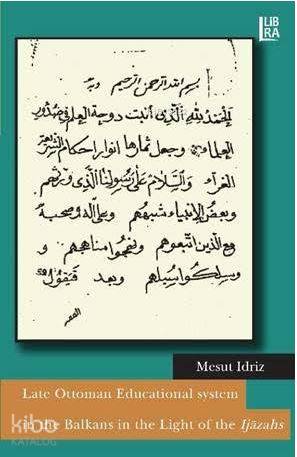 LIB
RA
بسم الله الرحمن الرحيم وبه
الحمد لله الذي أنبت دوحة العلم في صدور
العلماء وجعل ثمارها انوار احكام الشريعة
الغراء والسلام على رسولنا الذي
وبعض الانبياء شبههم وعلى اله وصحبه
مع الذين اتبعوهم مناهجهم و
وسلكوا سبيلهم وبعد فيقول
الفقير
Mesut Idriz
Late Ottoman Educational system
in the Balkans in the Light of the Ijāzahs
kibo
KATALOG